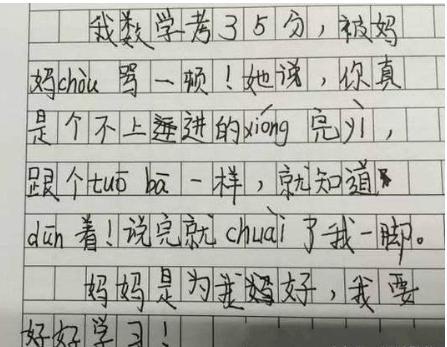 我数学考35分，被妈
妈chòu骂一顿！她说，你真
是个不上进的xióng完yì，
跟个tuō bā一样，就知道
dūn着！说完就chuài了我一脚。
妈妈是为我好，我要
好好学习！